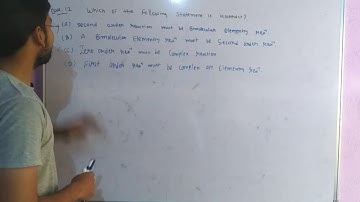 Que. 12 Which of the following statement is incorrect?
(A) Second order reaction must be Bimolecular Elementry reaⁿ.
(B) A Bimolecular Elementry reaⁿ must be Second order reaⁿ
(C) Zero order reaⁿ must be Complex reaction
(D) First order reaⁿ must be complex or Elementry reaⁿ.